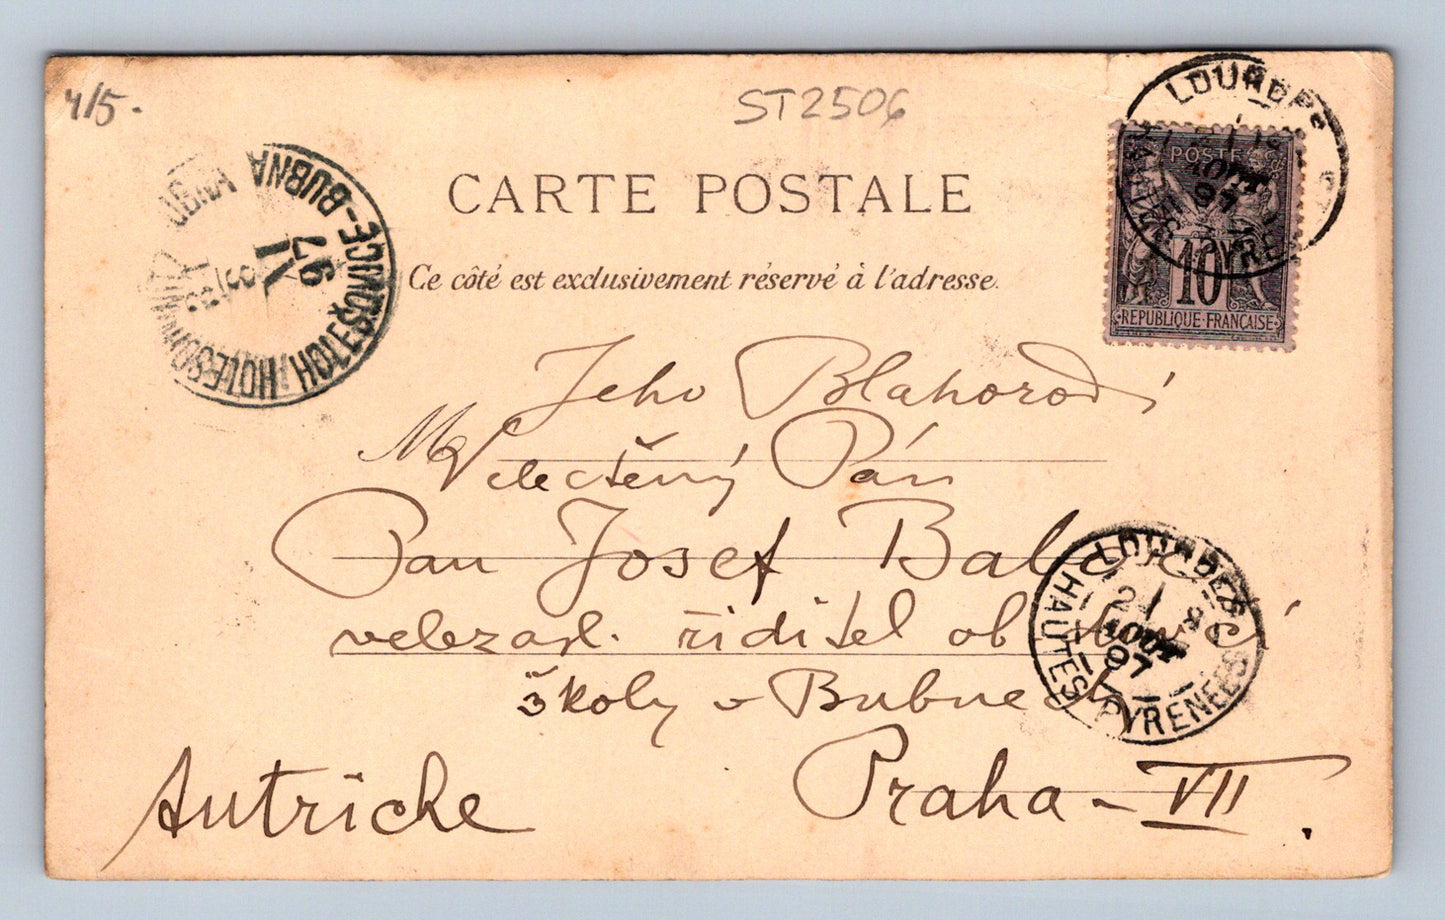 4/5.
ST2506
CARTE POSTALE
Ce côté est exclusivement réservé à l'adresse.
LOURDES
AOUT
97
POSTES
10
REPUBLIQUE FRANÇAISE
HOLEŠOVICE-BUBNA
HOLESCHOWITZ BUBNA
3
IX
97
Jeho Blahorodí
Velectěný Pán
Pan Josef
velezasl. řiditel obecné
školy v Bubnech
LOURDES
2
AOUT
97
HAUTES PYRENEES
Autriche
Praha - VII.